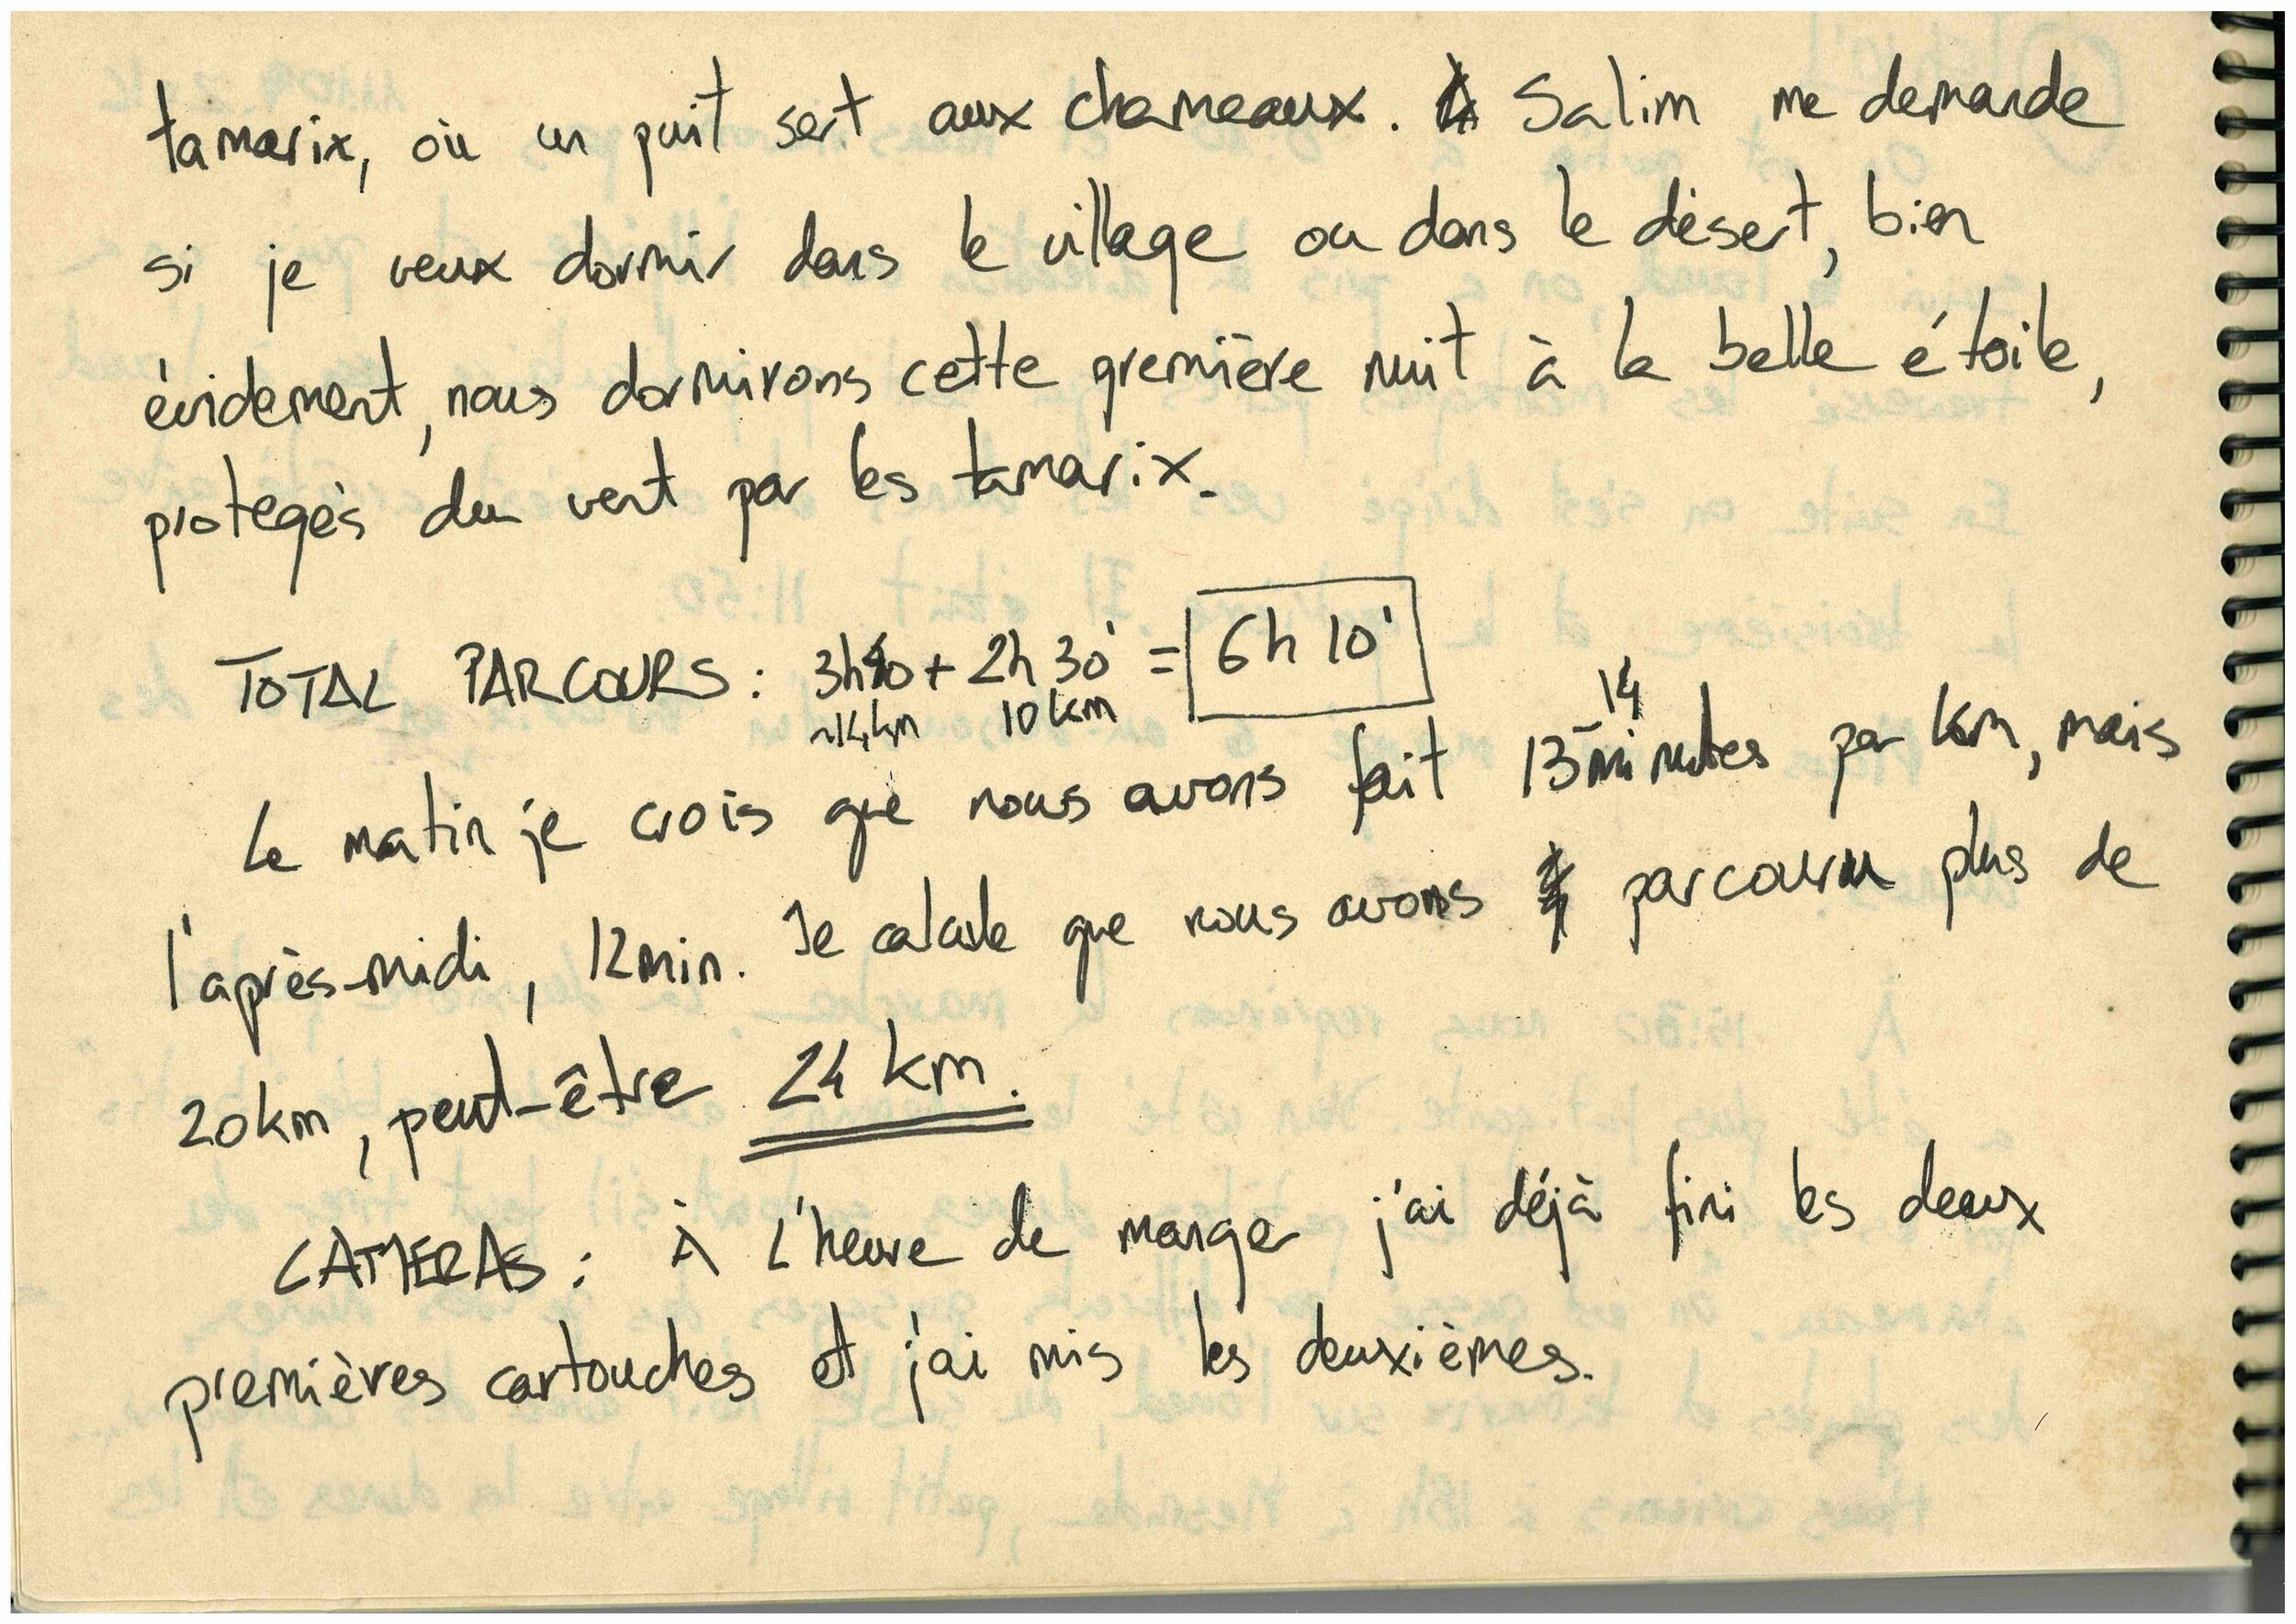 tamarix, où un puit sert aux chameaux. Salim me demande
si je veux dormir dans le village ou dans le désert, bien
évidement, nous dormirons cette première nuit à la belle étoile,
protegés du vent par les tamarix.
TOTAL PARCOURS: 3h40 + 2h 30' = 6h 10'
~14km 10km
Le matin je crois que nous avons fait 13-14 minutes par km, mais
l'après-midi, 12min. Je calcule que nous avons parcouru plus de
20km, peut-être 24 km.
CAMERAS: À L'heure de manger j'ai déjà fini les deux
premières cartouches et j'ai mis les deuxièmes.